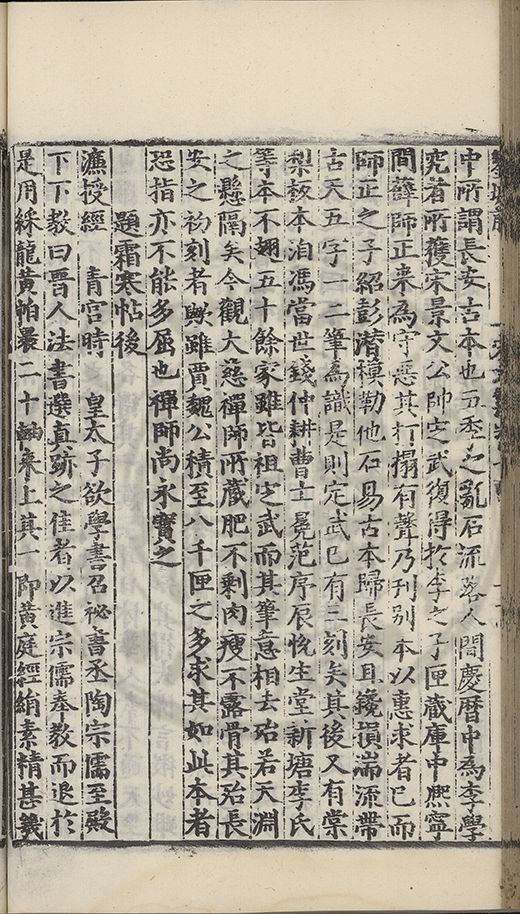 中所謂長安古本也五季之亂石流落人間慶曆中為李學
究者所獲宋景文公帥定武復得於李之子匣藏庫中熙寧
間薛師正來為守惡其打搨有聲乃刊别本以惠求者已而
師正之子紹彭潛模勒他石易古本歸長安且鑱損湍流帶
古天五字一二筆為識是則定武已有三刻矣其後又有棠
梨板本洎馮當世錢仲耕曹士冕范序辰悅生堂新塘李氏
等本不翅五十餘家雖皆祖定武而其筆意相去殆若天淵
之懸隔矣今觀大慈禪師所藏肥不剩肉瘦不露骨其殆長
安之初刻者歟雖賈魏公積至八千匣之多求其如此本者
恐指亦不能多屈也禪師尚永寶之
題霜寒帖後
濂授經 青宮時 皇太子欲學書召祕書丞陶宗儒至殿
下下教曰晋人法書選真跡之佳者以進宗儒奉教而退於
是用綵龍黄帕裹二十軸来上其一即黄庭經絹素精甚幾